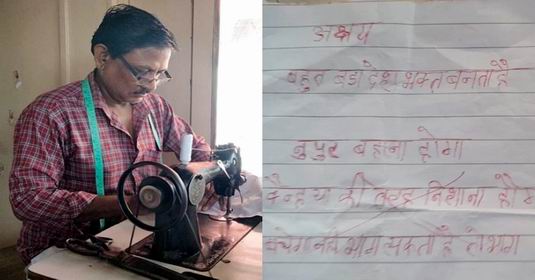 अक्षय
बहुत बड़ा देश भक्त बनता है
नुपुर बहाना होगा
कन्हैया की तरह निशाना
बचेगा नही भाग सकता है तो भाग